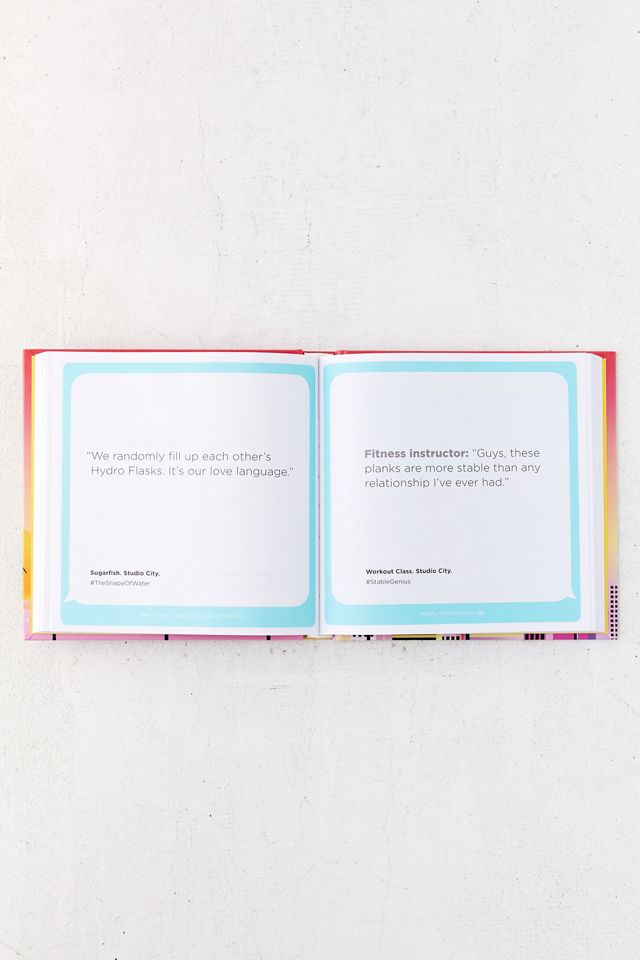 “We randomly fill up each other’s
Hydro Flasks. It’s our love language.”
Sugarfish. Studio City.
#TheShapeOfWater
Fitness instructor: “Guys, these
planks are more stable than any
relationship I’ve ever had.”
Workout Class. Studio City.
#StableGenius